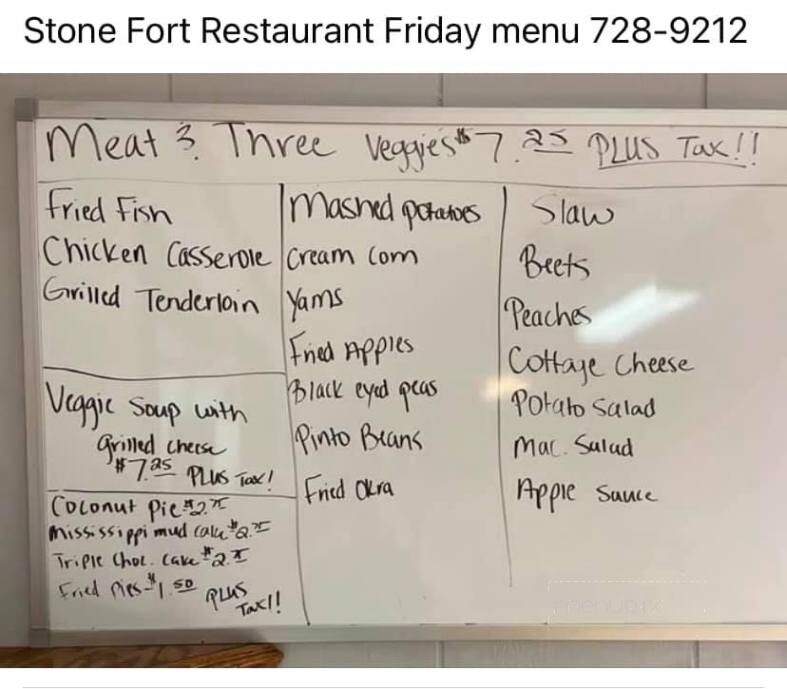 Stone Fort Restaurant Friday menu 728-9212
Meat 3. Three Veggies $7.25 PLUS Tax!!
Fried Fish
Chicken Casserole
Grilled Tenderloin
Veggie Soup with
grilled cheese
$7.25 PLUS Tax!
Coconut Pie $2.
Mississippi mud cake $2.
Triple Choc. Cake $2.
Fried Pies - $1.50 PLUS
Tax!!
Mashed potatoes
Cream Corn
Yams
Fried Apples
Black eyed peas
Pinto Beans
Fried Okra
Slaw
Beets
Peaches
Cottage Cheese
Potato Salad
Mac. Salad
Apple Sauce
menupix